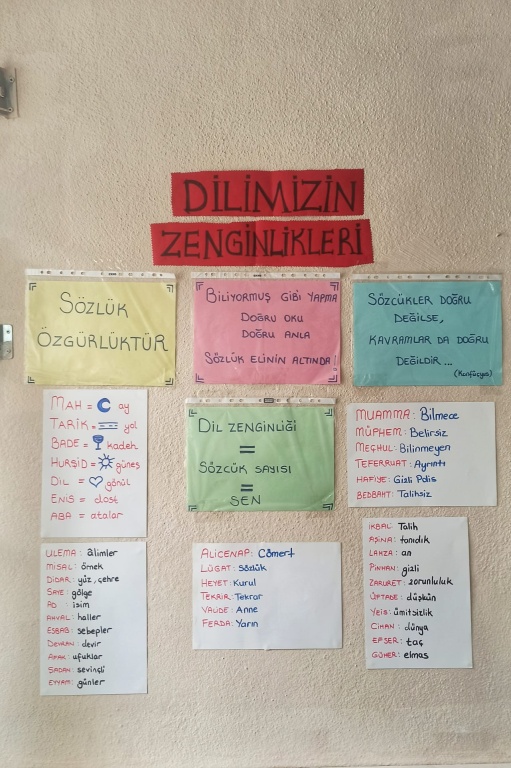 DİLİMİZİN
ZENGİNLİKLERİ
SÖZLÜK
ÖZGÜRLÜKTÜR
BİLİYORMUŞ GİBİ YAPMA
DOĞRU OKU
DOĞRU ANLA
SÖZLÜK ELİNİN ALTINDA!
SÖZCÜKLER DOĞRU
DEĞİLSE,
KAVRAMLAR DA DOĞRU
DEĞİLDİR...
(Konfüçyüs)
MAH = ay
TARİK = yol
BADE = kadeh
HURŞİD = güneş
DİL = gönül
ENİS = dost
ABA = atalar
DİL ZENGİNLİĞİ
=
SÖZCÜK SAYISI
=
SEN
MUAMMA: Bilmece
MÜPHEM: Belirsiz
MEÇHUL: Bilinmeyen
TEFERRUAT: Ayrıntı
HAFİYE: Gizli Polis
BEDBAHT: Talihsiz
ULEMA: âlimler
MİSAL: örnek
DİDAR: yüz, çehre
SAYE: gölge
AD: isim
AHVAL: haller
ESBAB: sebepler
DEVRAN: devir
AFAK: ufuklar
ŞADAN: sevinçli
EYYAM: günler
ALİCENAP: Cömert
LÜGAT: Sözlük
HEYET: Kurul
TEKRİR: Tekrar
VALİDE: Anne
FERDA: Yarın
İKBAL: Talih
AŞİNA: tanıdık
LAHZA: an
PİNHAN: gizli
ZARURET: zorunluluk
ÜFTADE: düşkün
YEİS: ümitsizlik
CİHAN: dünya
EFSER: taç
GÜHER: elmas